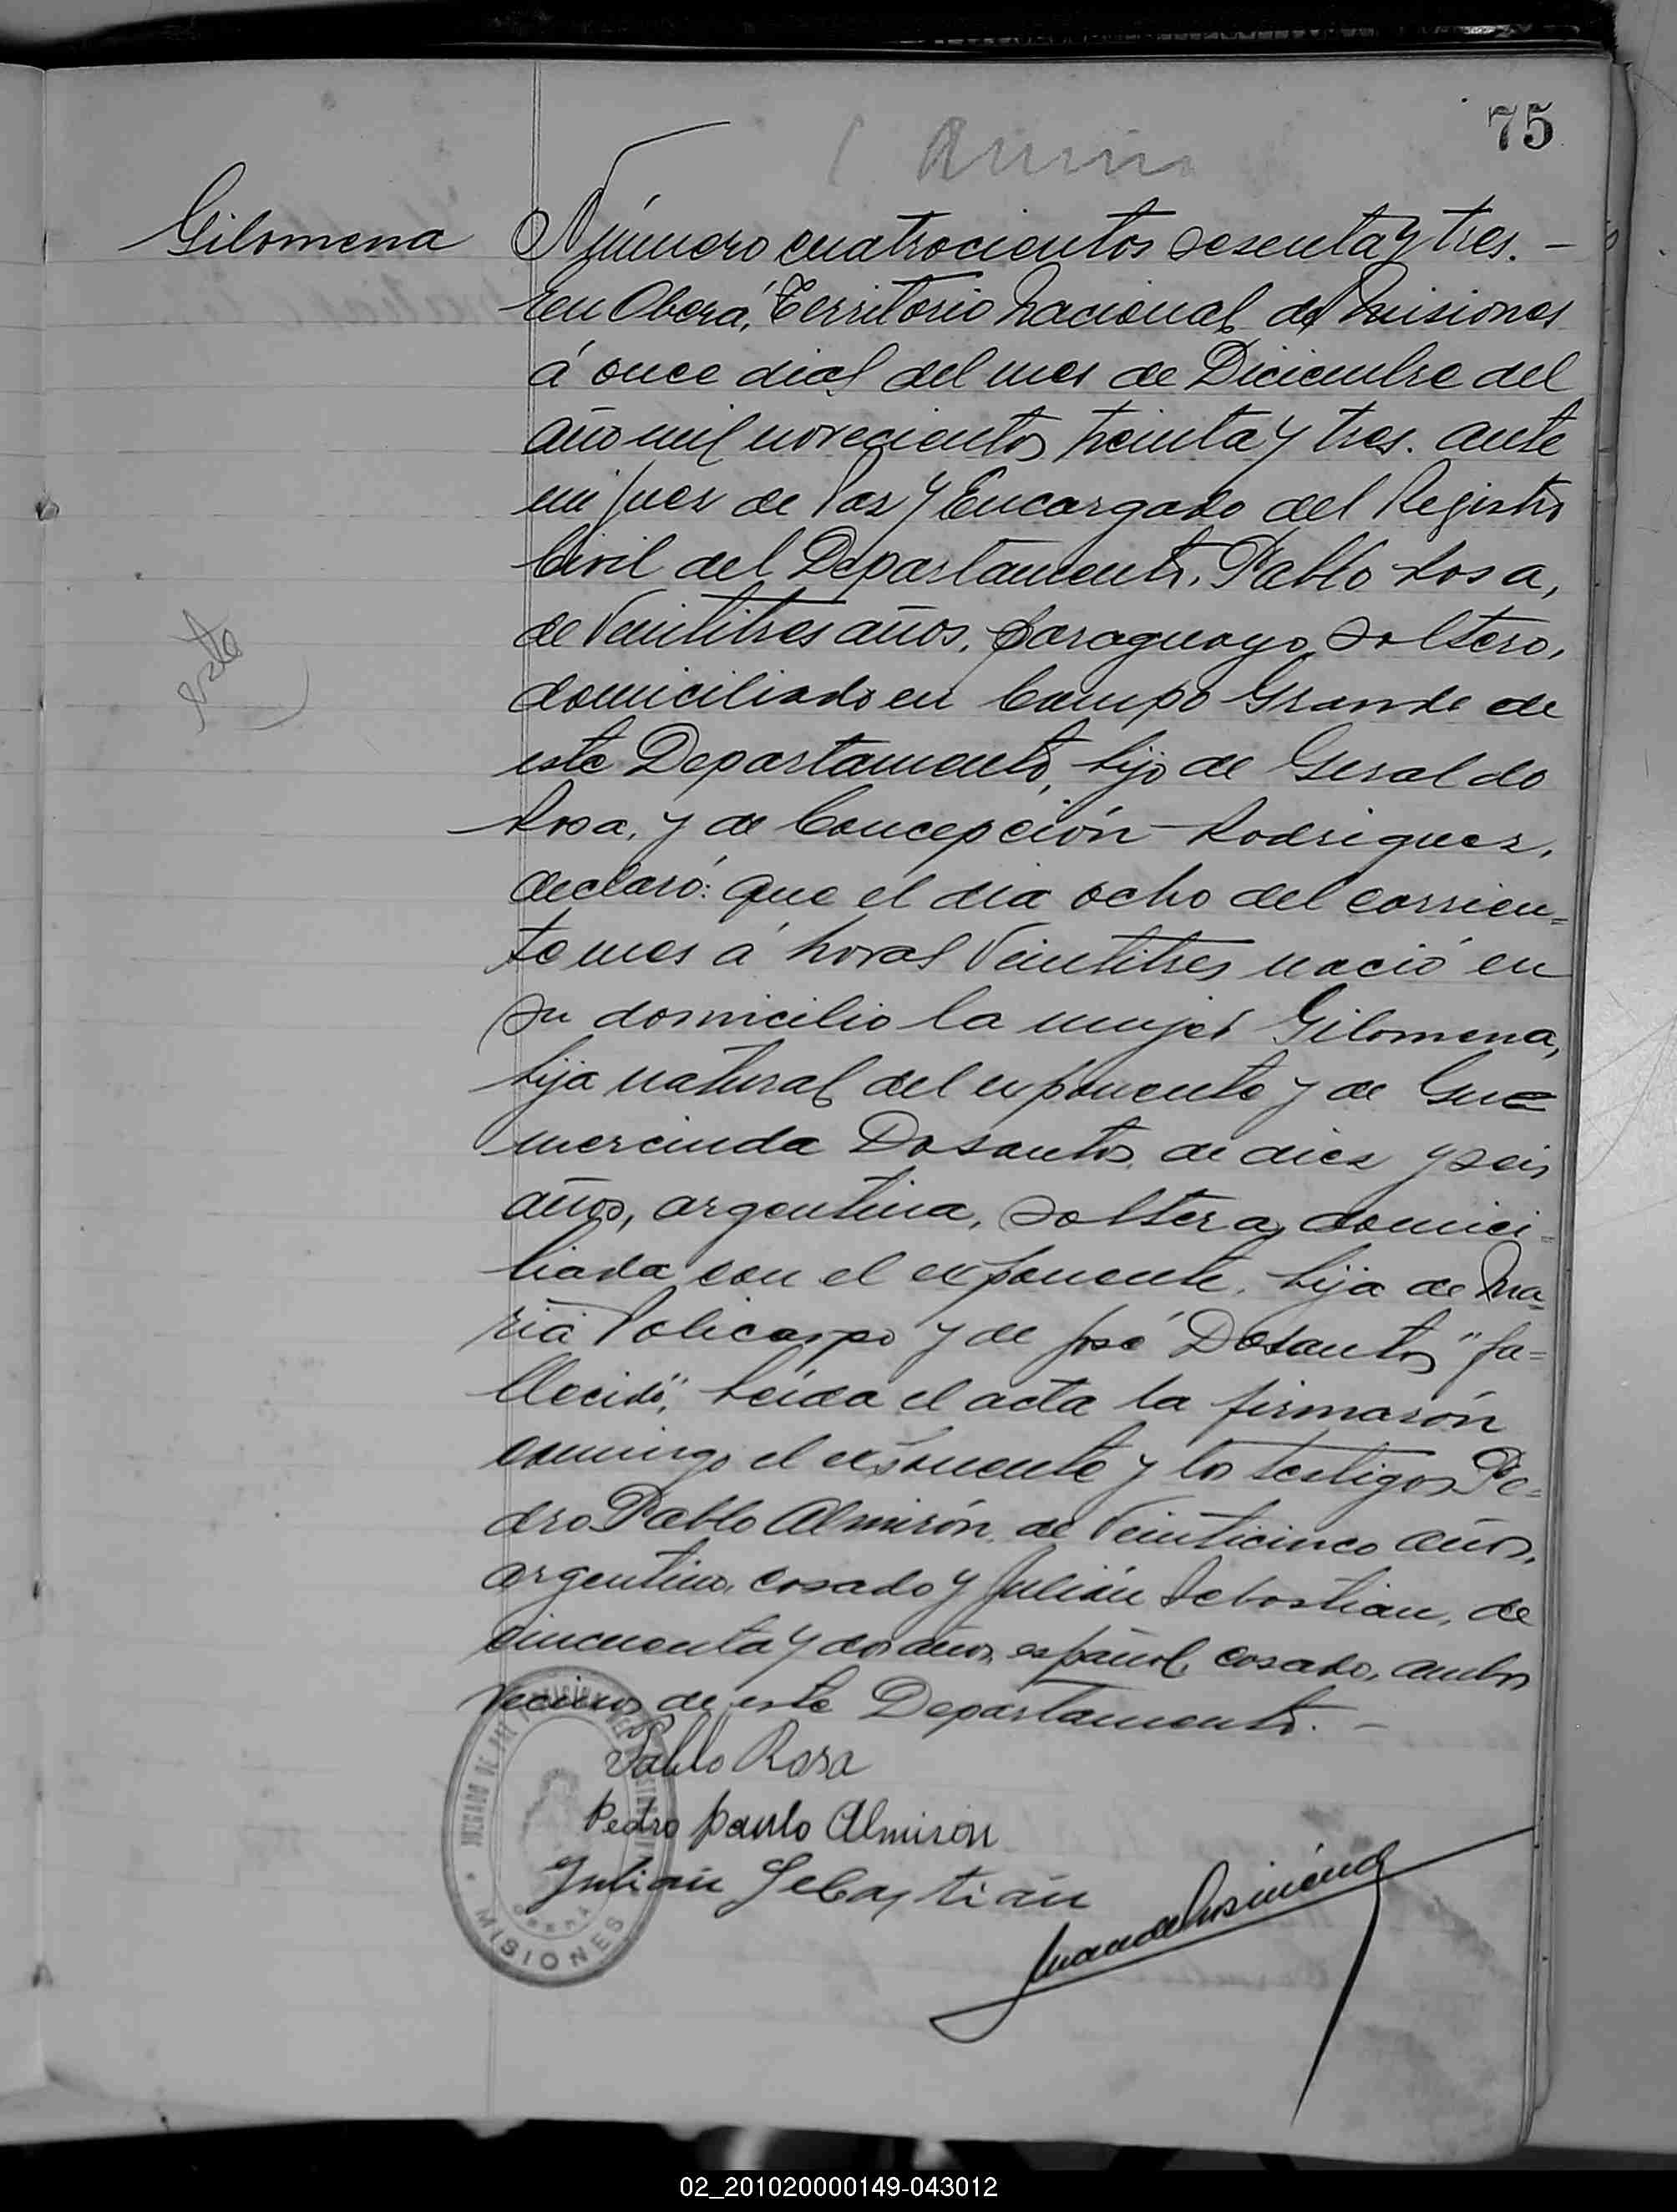 75
Gilomena
Número cuatrocientos sesenta y tres. —
En Oberá, Territorio Nacional de Misiones
á once dias del mes de Diciembre del
año mil novecientos treinta y tres. ante
mi Juez de Paz y Encargado del Registro
Civil del Departamento, Pablo Rosa,
de Veintitres años, paraguayo, soltero,
domiciliado en Campo Grande de
este Departamento, hijo de Geraldo
Rosa, y de Concepción Rodriguez,
declaró: que el dia ocho del corrien=
te mes á horas Veintitres nació en
su domicilio la mujer Gilomena,
hija natural del exponente y de Gu=
mercinda Dosantos, de diez y seis
años, argentina, soltera, domici=
liada con el exponente, hija de Ma=
ria Policarpo y de José Dosantos "fa=
llecido", Leida el acta la firmarón
conmigo el exponente y los testigos Pe=
dro Pablo Almirón, de Veinticinco años,
argentino, casado y Julián Sebastian, de
cincuenta y dos años, español, casado, ambos
vecinos de este Departamento. —
Pablo Rosa
Pedro pablo Almiron
Julián Sebastián
JUZGADO DE PAZ
MISIONES
02_201020000149-043012